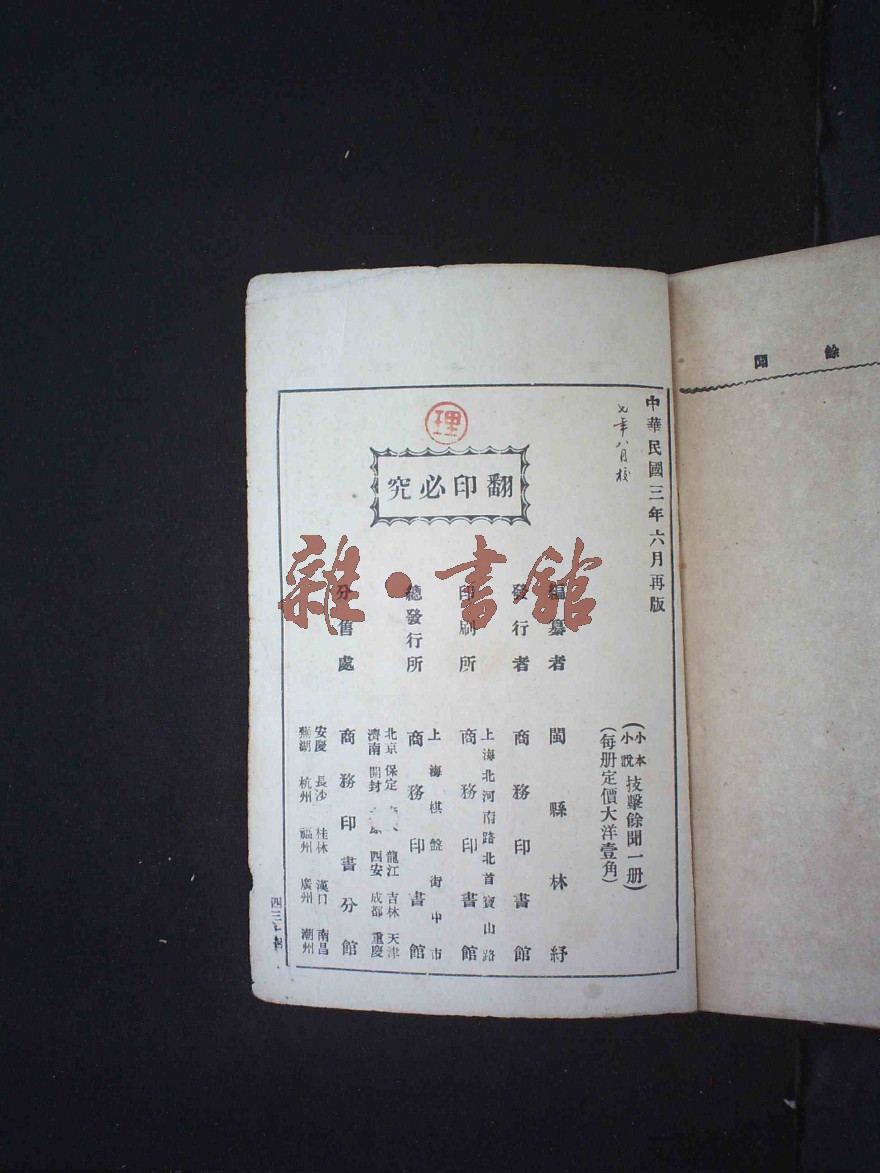 餘聞
中華民國三年六月再版
七年八月校
(小本小說技擊餘聞一册)
(每册定價大洋壹角)
編纂者 閩縣林紓
發行者 商務印書館
上海北河南路北首寶山路
印刷所 商務印書館
上海棋盤街中市
總發行所 商務印書館
北京 保定 龍江 吉林 天津
濟南 開封 西安 成都 重慶
分售處 商務印書分館
安慶 長沙 桂林 漢口 南昌
蕪湖 杭州 福州 廣州 潮州
理
翻印必究
雜·書館